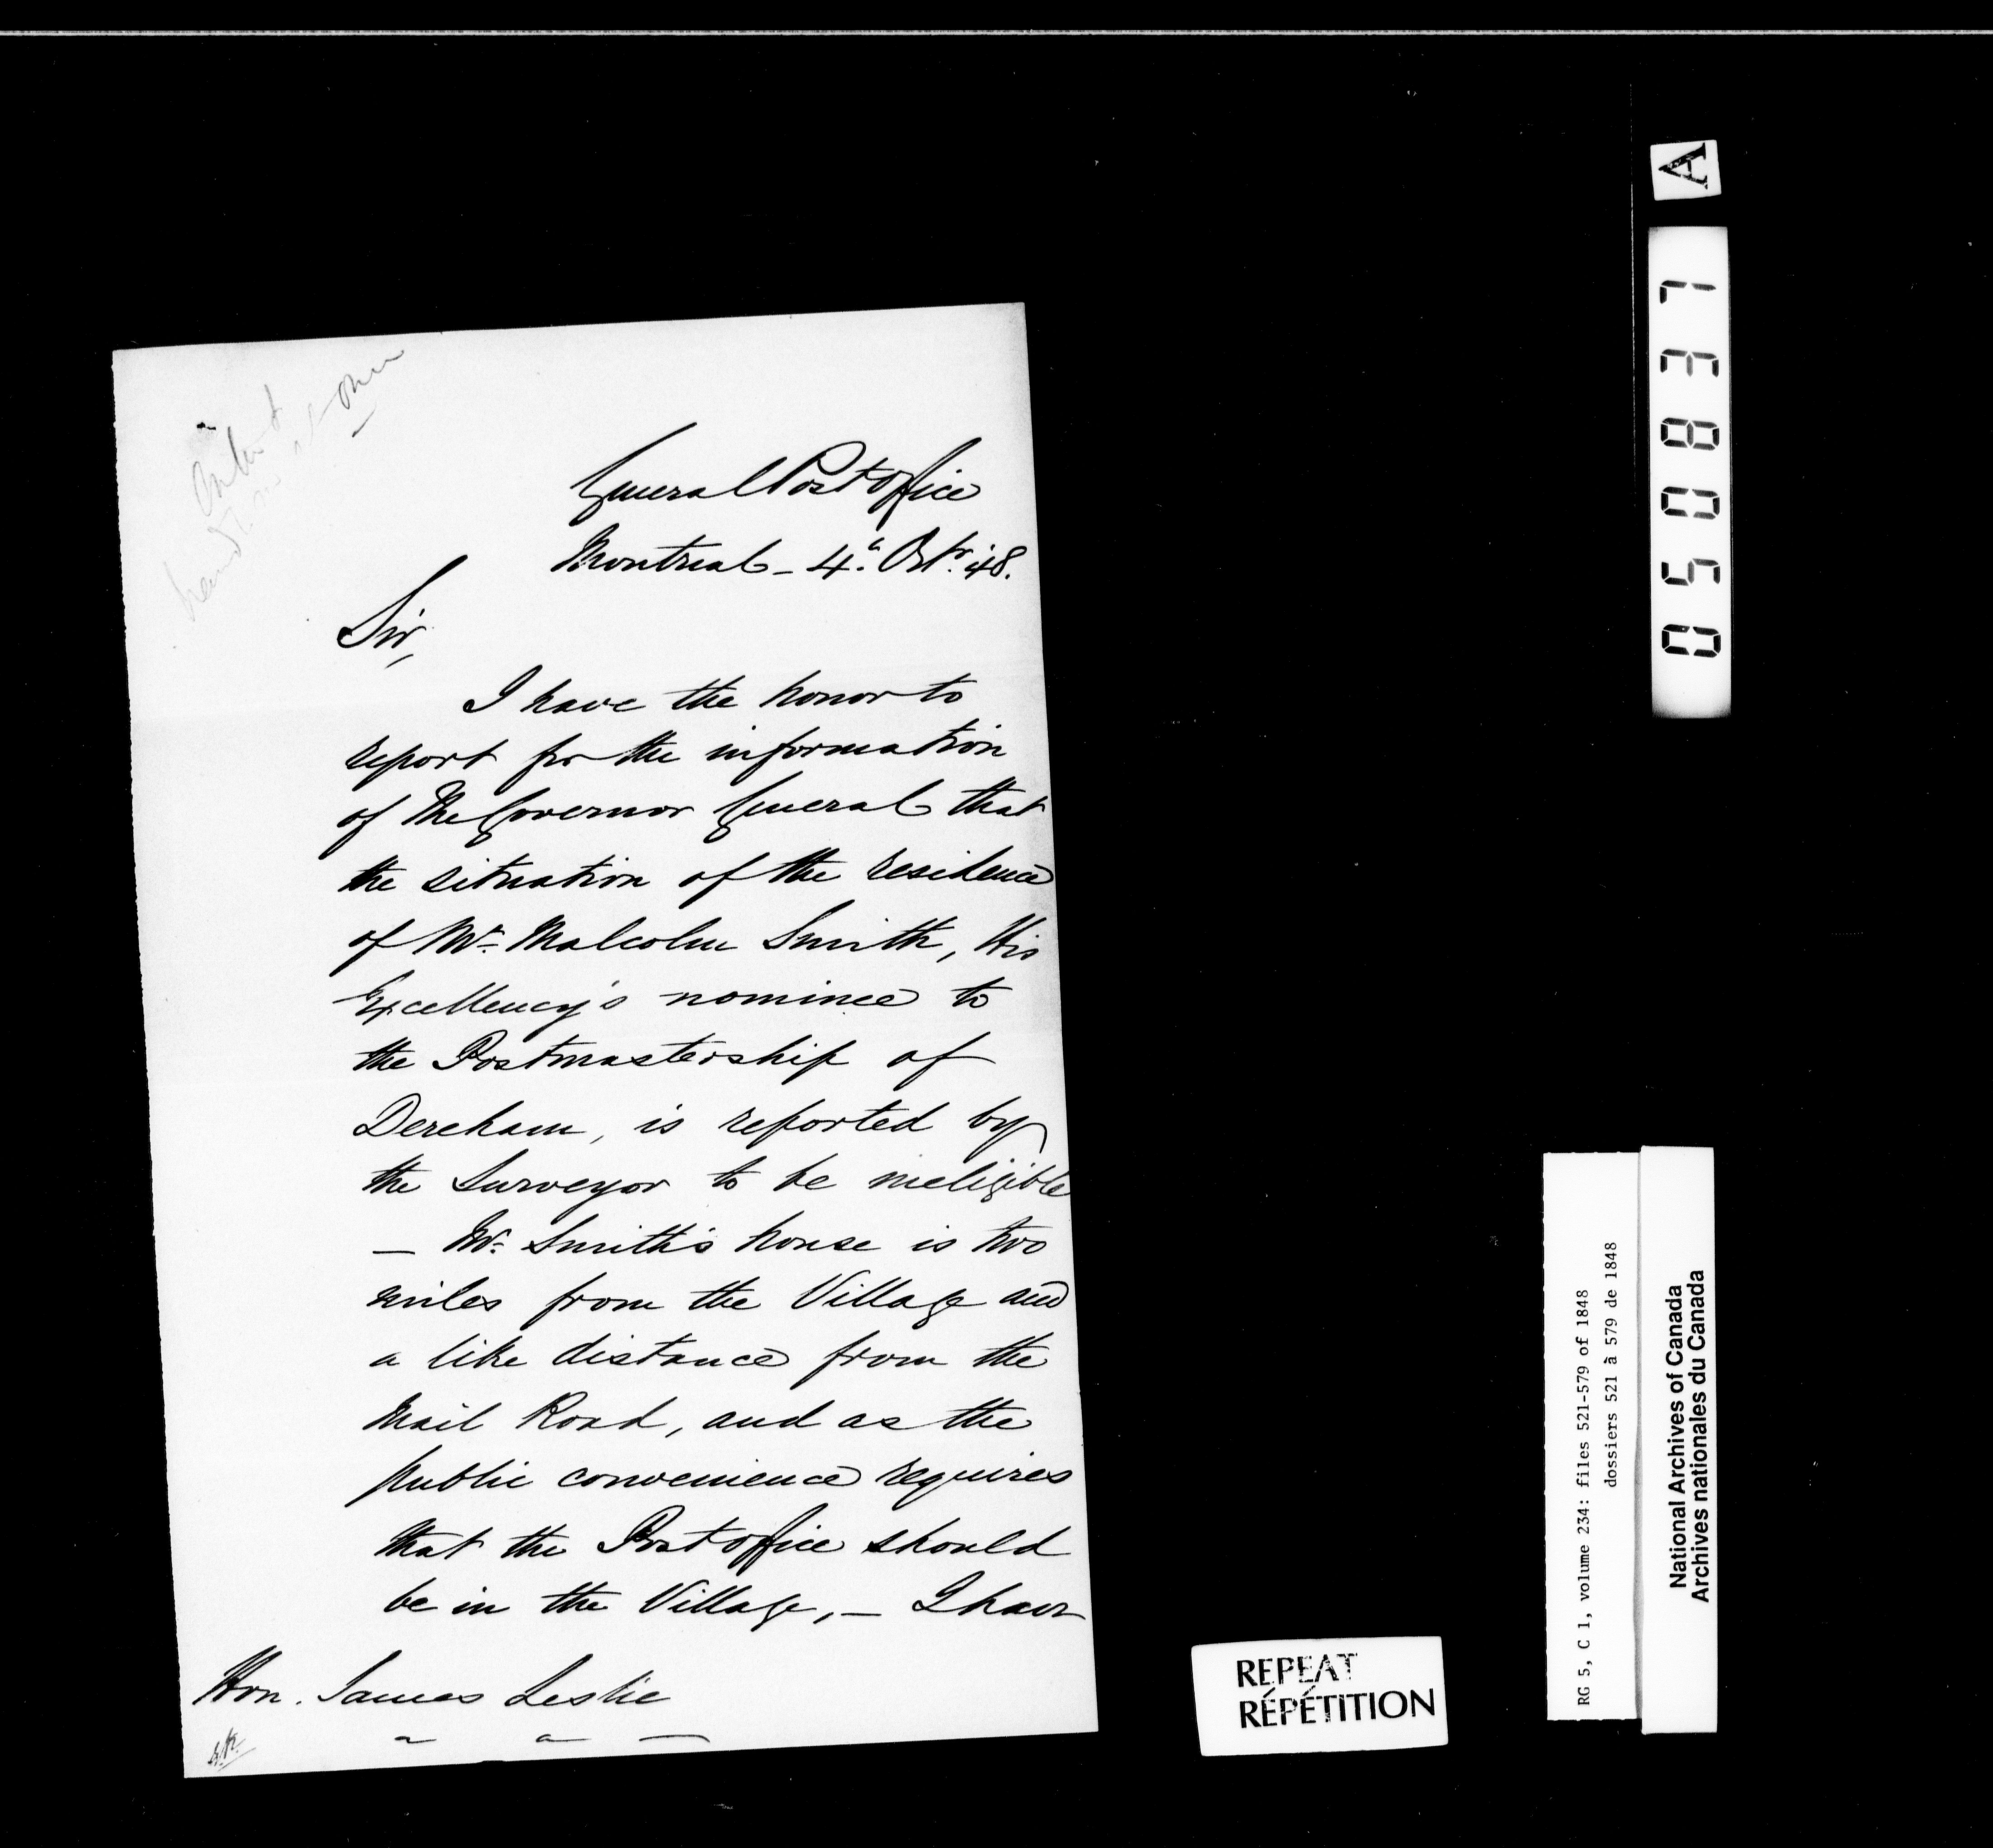 General Post Office
Montreal - 4th Octr. '48.
Sir,
I have the honor to
report for the information
of The Governor General that
the situation of the residence
of Mr. Malcolm Smith, His
Excellency's nominee to
the Postmastership of
Dereham, is reported by
the Surveyor to be ineligible
- Mr. Smith's house is two
miles from the Village and
a like distance from the
Mail Road, and as the
public convenience requires
that the Post Office should
be in the Village, - I have
Hon. James Leslie
A
050837
REPEAT
RÉPÉTITION
RG 5, C 1, volume 234: files 521-579 of 1848
dossiers 521 à 579 de 1848
National Archives of Canada
Archives nationales du Canada